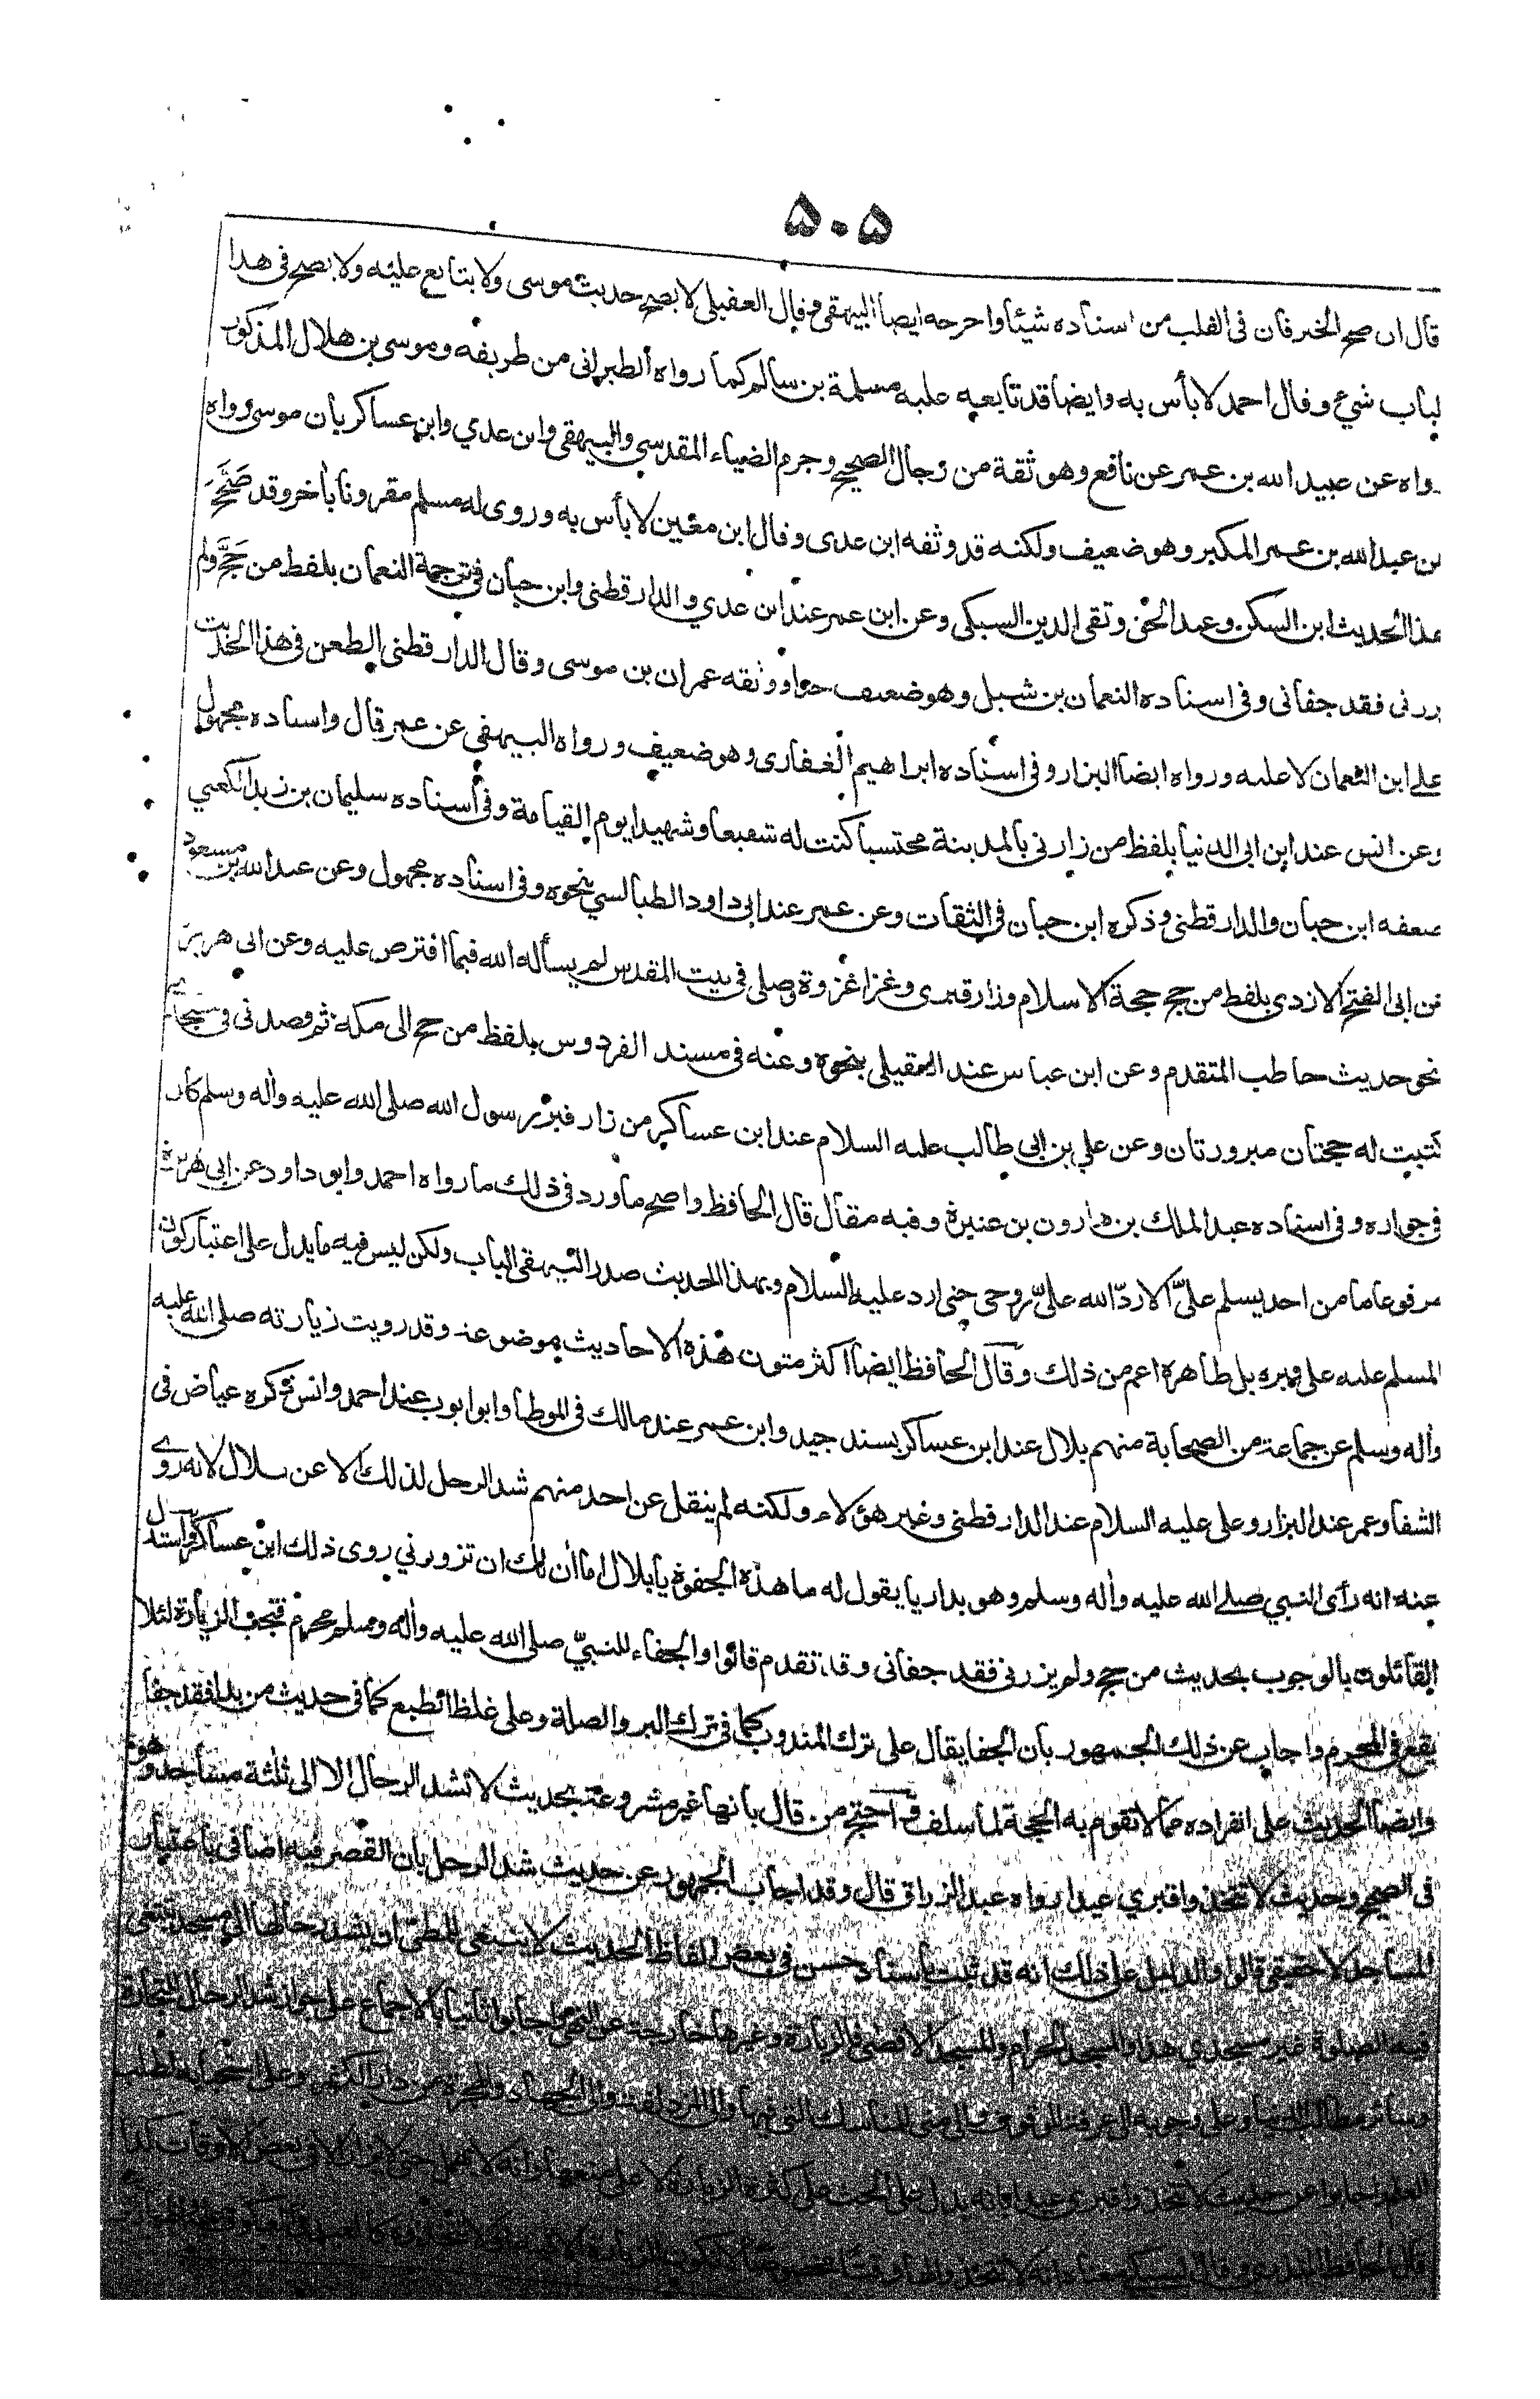 ۵۰۵
قال ان صح الخبر فان فى القلب من اسناده شيئا واخرجه ايضا البيهقى وقال العقيلى لا يصح حديث موسى ولا يتابع عليه ولا يصح فى هذا
لباب شيء وقال احمد لا بأس به وايضا قد تابعه عليه مسلمة بن سالم كما رواه الطبرانى من طريقه وموسى بن هلال المذكور
رواه عن عبيد الله بن عمر عن نافع وهو ثقة من رجال الصحيح وجزم الضياء المقدسي والبيهقى وابن عدي وابن عساكر بان موسى رواه
ن عبد الله بن عمر المكبر وهو ضعيف ولكنه قد وثقه ابن عدى وقال ابن معين لا بأس به وروى له مسلم مقرونا بأخر وقد صَحَّحَ
هذا الحديث ابن السكن وعبد الحق وتقى الدين السبكى وعن ابن عمر عند ابن عدي والدار قطنى وابن حبان فى ترجمة النعمان بلفظ من حَجَّ ولم
يزرنى فقد جفانى وفى اسناده النعمان بن شبل وهو ضعيف جدا ووثقه عمران بن موسى وقال الدار قطنى الطعن فى هذا الحديث
على ابن النعمان لا عليه ورواه ايضا البزار وفى اسناده ابراهيم الغفارى وهو ضعيف ورواه البيهقى عن عمر قال واسناده مجهول
وعن انس عند ابن ابى الدنيا بلفظ من زارنى بالمدينة محتسبا كنت له شفيعا وشهيدا يوم القيامة وفى اسناده سليمان بن زيد الكعبي
ضعفه ابن حبان والدار قطنى وذكره ابن حبان فى الثقات وعن عمر عند ابى داود الطيالسي بنحوه وفى اسناده مجهول وعن عبد الله بن مسعود
عن ابى الفتح الازدى بلفظ من حج حجة الاسلام وزار قبرى وغزا غزوة وصلى فى بيت المقدس لم يسأله الله فيما افترض عليه وعن ابى هريرة
نحو حديث حاطب المتقدم وعن ابن عباس عند العقيلى بنحوه وعنه فى مسند الفردوس بلفظ من حج الى مكة ثم قصدنى فى مسجدى
كتبت له حجتان مبرورتان وعن علي بن ابى طالب عليه السلام عند ابن عساكر من زار قبر رسول الله صلى الله عليه وأله وسلم كان
فى جواره وفى اسناده عبد الملك بن هارون بن عنيرة وفيه مقال قال الحافظ واصح ما ورد فى ذلك ما رواه احمد وابو داود عن ابى هريرة
مرفوعا ما من احد يسلم عليَّ الا ردّ الله عليّ روحى حتى ارد عليه السلام وبهذا الحديث صدر البيهقى الباب ولكن ليس فيه ما يدل على اعتبار كون
المسلم عليه على قبره بل ظاهره اعم من ذلك وقال الحافظ ايضا اكثر متون هذه الاحاديث موضوعة وقد رويت زيارته صلى الله عليه
وأله وسلم عن جماعة من الصحابة منهم بلال عند ابن عساكر بسند جيد وابن عمر عند مالك فى الموطا وابو ايوب عند احمد وانس ذكره عياض فى
الشفا وعمر عند البزار وعلى عليه السلام عند الدار قطنى وغير هؤلاء ولكنه لم ينقل عن احد منهم شد الرحل لذلك الا عن بلال لانه روى
عنه انه رأى النبي صلى الله عليه وأله وسلم وهو بداريا يقول له ما هذه الجفوة يا بلال اما أن لك ان تزورني روى ذلك ابن عساكر واستدل
القائلون بالوجوب بحديث من حج ولم يزرنى فقد جفانى وقد تقدم قالوا والجفاء للنبيّ صلى الله عليه وأله وسلم محرم فتجب الزيارة لئلا
يقع فى المحرم واجاب عن ذلك الجمهور بأن الجفا يقال على ترك المندوب كما فى ترك البر والصلة وعلى غلظ الطبع كما فى حديث من بدا فقد جفا
وايضا الحديث على انفراده مما لا تقوم به الحجة لما سلف واحتج من قال بأنها غير مشروعة بحديث لا تشد الرحال الا الى ثلثة مساجد وهو
فى الصحيح وحديث لا تتخذوا قبري عيدا رواه عبد الرزاق قال وقد اجاب الجمهور عن حديث شد الرحل بان القصر فيه اضافى باعتبار
المساجد لا حقيقى قالوا والدليل على ذلك انه قد ثبت بأسناد حسن فى بعض الفاظ الحديث لا ينبغى للمطى ان يشد رحالها الى مسجد تبتغى
فيه الصلوة غير مسجدي هذا والمسجد الحرام والمسجد الاقصى فالزيارة وغيرها خارجة عن النهى واجابوا ثانيا بالاجماع على جواز شد الرحال للتجارة
وسائر مطالب الدنيا وعلى وجوبه الى عرفة للوقوف والى منى للمناسك التى فيها والى المزدلفة والى الجهاد والهجرة من دار الكفر وعلى استحبابه لطلب
العلم واجابوا عن حديث لا تتخذوا قبري عيدا بانه يدل على الحث على كثرة الزيارة لا على منعها وانه لا يهمل حتى لا يزار الا فى بعض الاوقات كذا